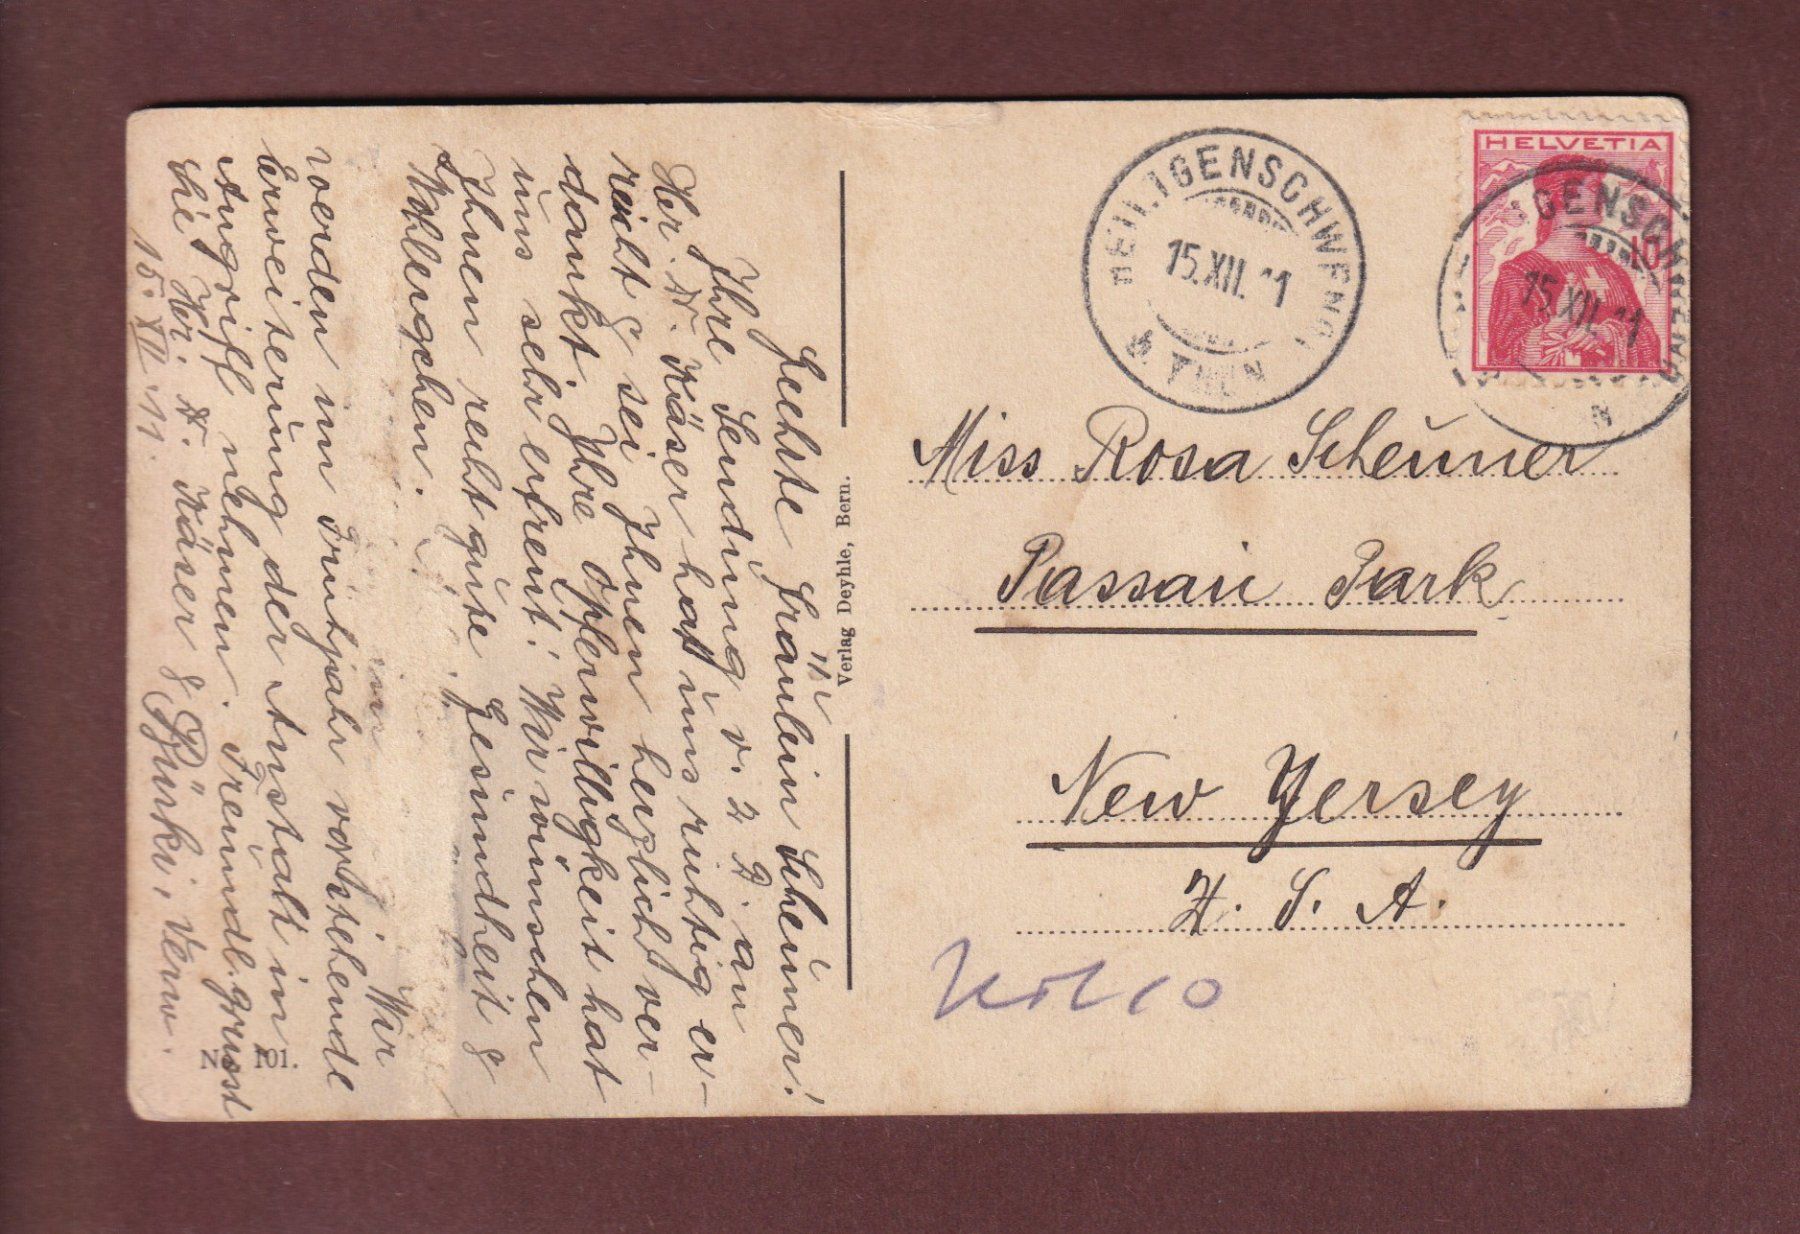 Geehrte Fräulein Scheuner!
Ihre Sendung v. 2 D. an
Hr. A. Käser hat uns richtig er-
reicht & sei Ihnen herzlichst ver-
dankt. Ihre Opferwilligkeit hat
uns sehr erfreut! Wir wünschen
Ihnen recht gute Gesundheit &
Wohlergehen.
Wir
werden im Frühjahr vorstehende
Erweiterung der Anstalt in
Angriff nehmen. Freundl. grüsst
Sie Hr. A. Käser & Bürki, Verw.
15. XII 11.
No. 101.
Verlag Deyhle, Bern.
HEILIGENSCHWENDI
15.XII.11
THUN
HELVETIA
10
IGENSCHWENDI
15 XII 11
N
Miss Rosa Scheuner
Passaic Park
New Yersey
U. S. A.